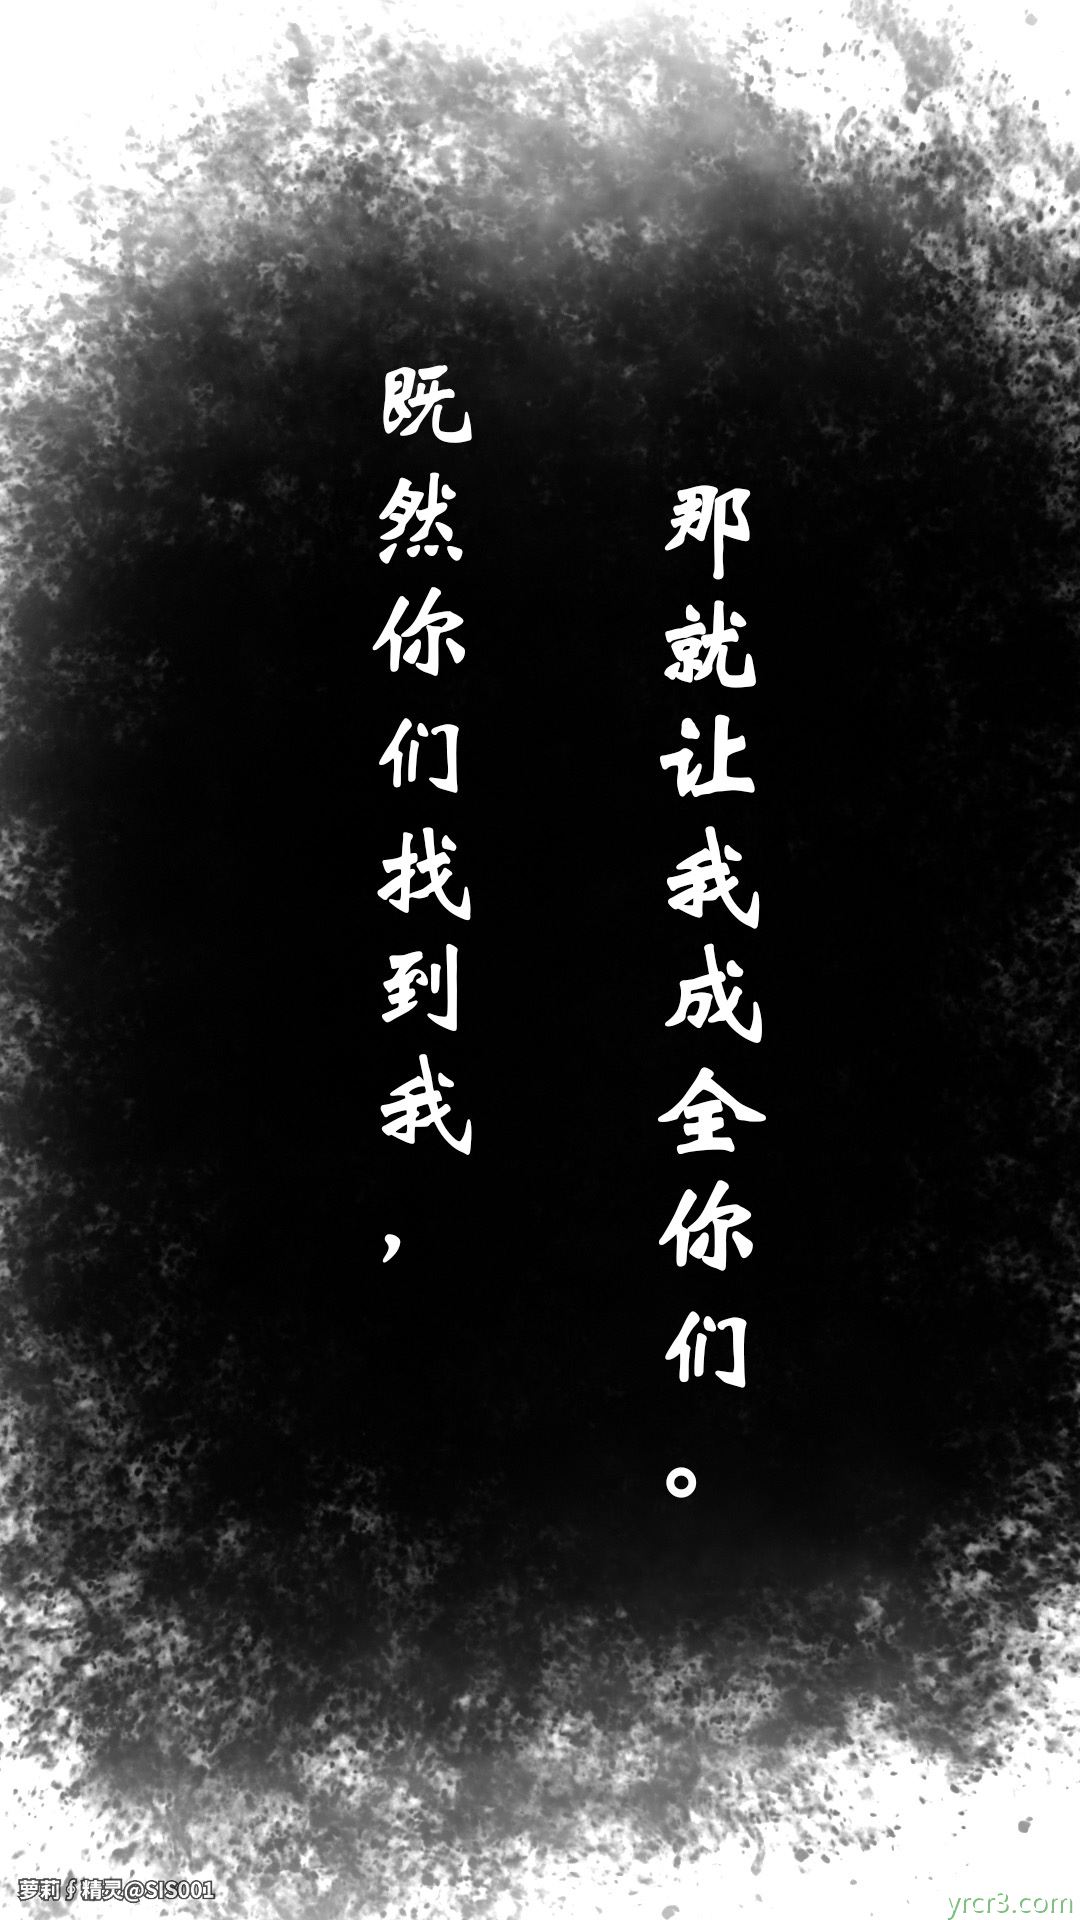 既然你们找到我，
那就让我成全你们。
萝莉∮精灵@SIS001
yrcr3.com